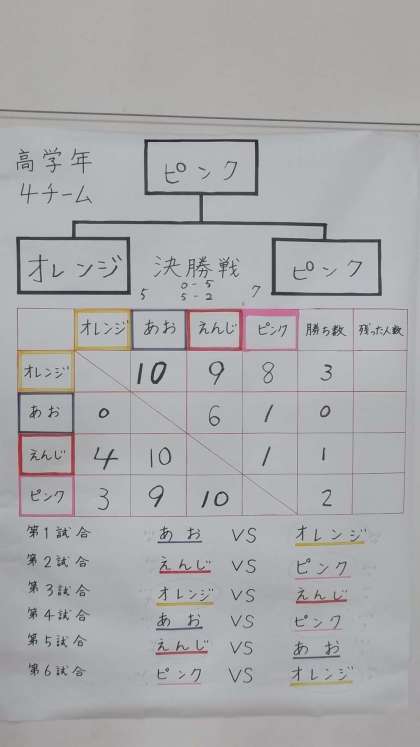 高学年
4チーム
ピンク
オレンジ 決勝戦 ピンク
0-5
5 5-2 7
オレンジ あお えんじ ピンク 勝ち数 残った人数
オレンジ 10 9 8 3
あお 0 6 1 0
えんじ 4 10 1 1
ピンク 3 9 10 2
第1試合 あお VS オレンジ
第2試合 えんじ VS ピンク
第3試合 オレンジ VS えんじ
第4試合 あお VS ピンク
第5試合 えんじ VS あお
第6試合 ピンク VS オレンジ